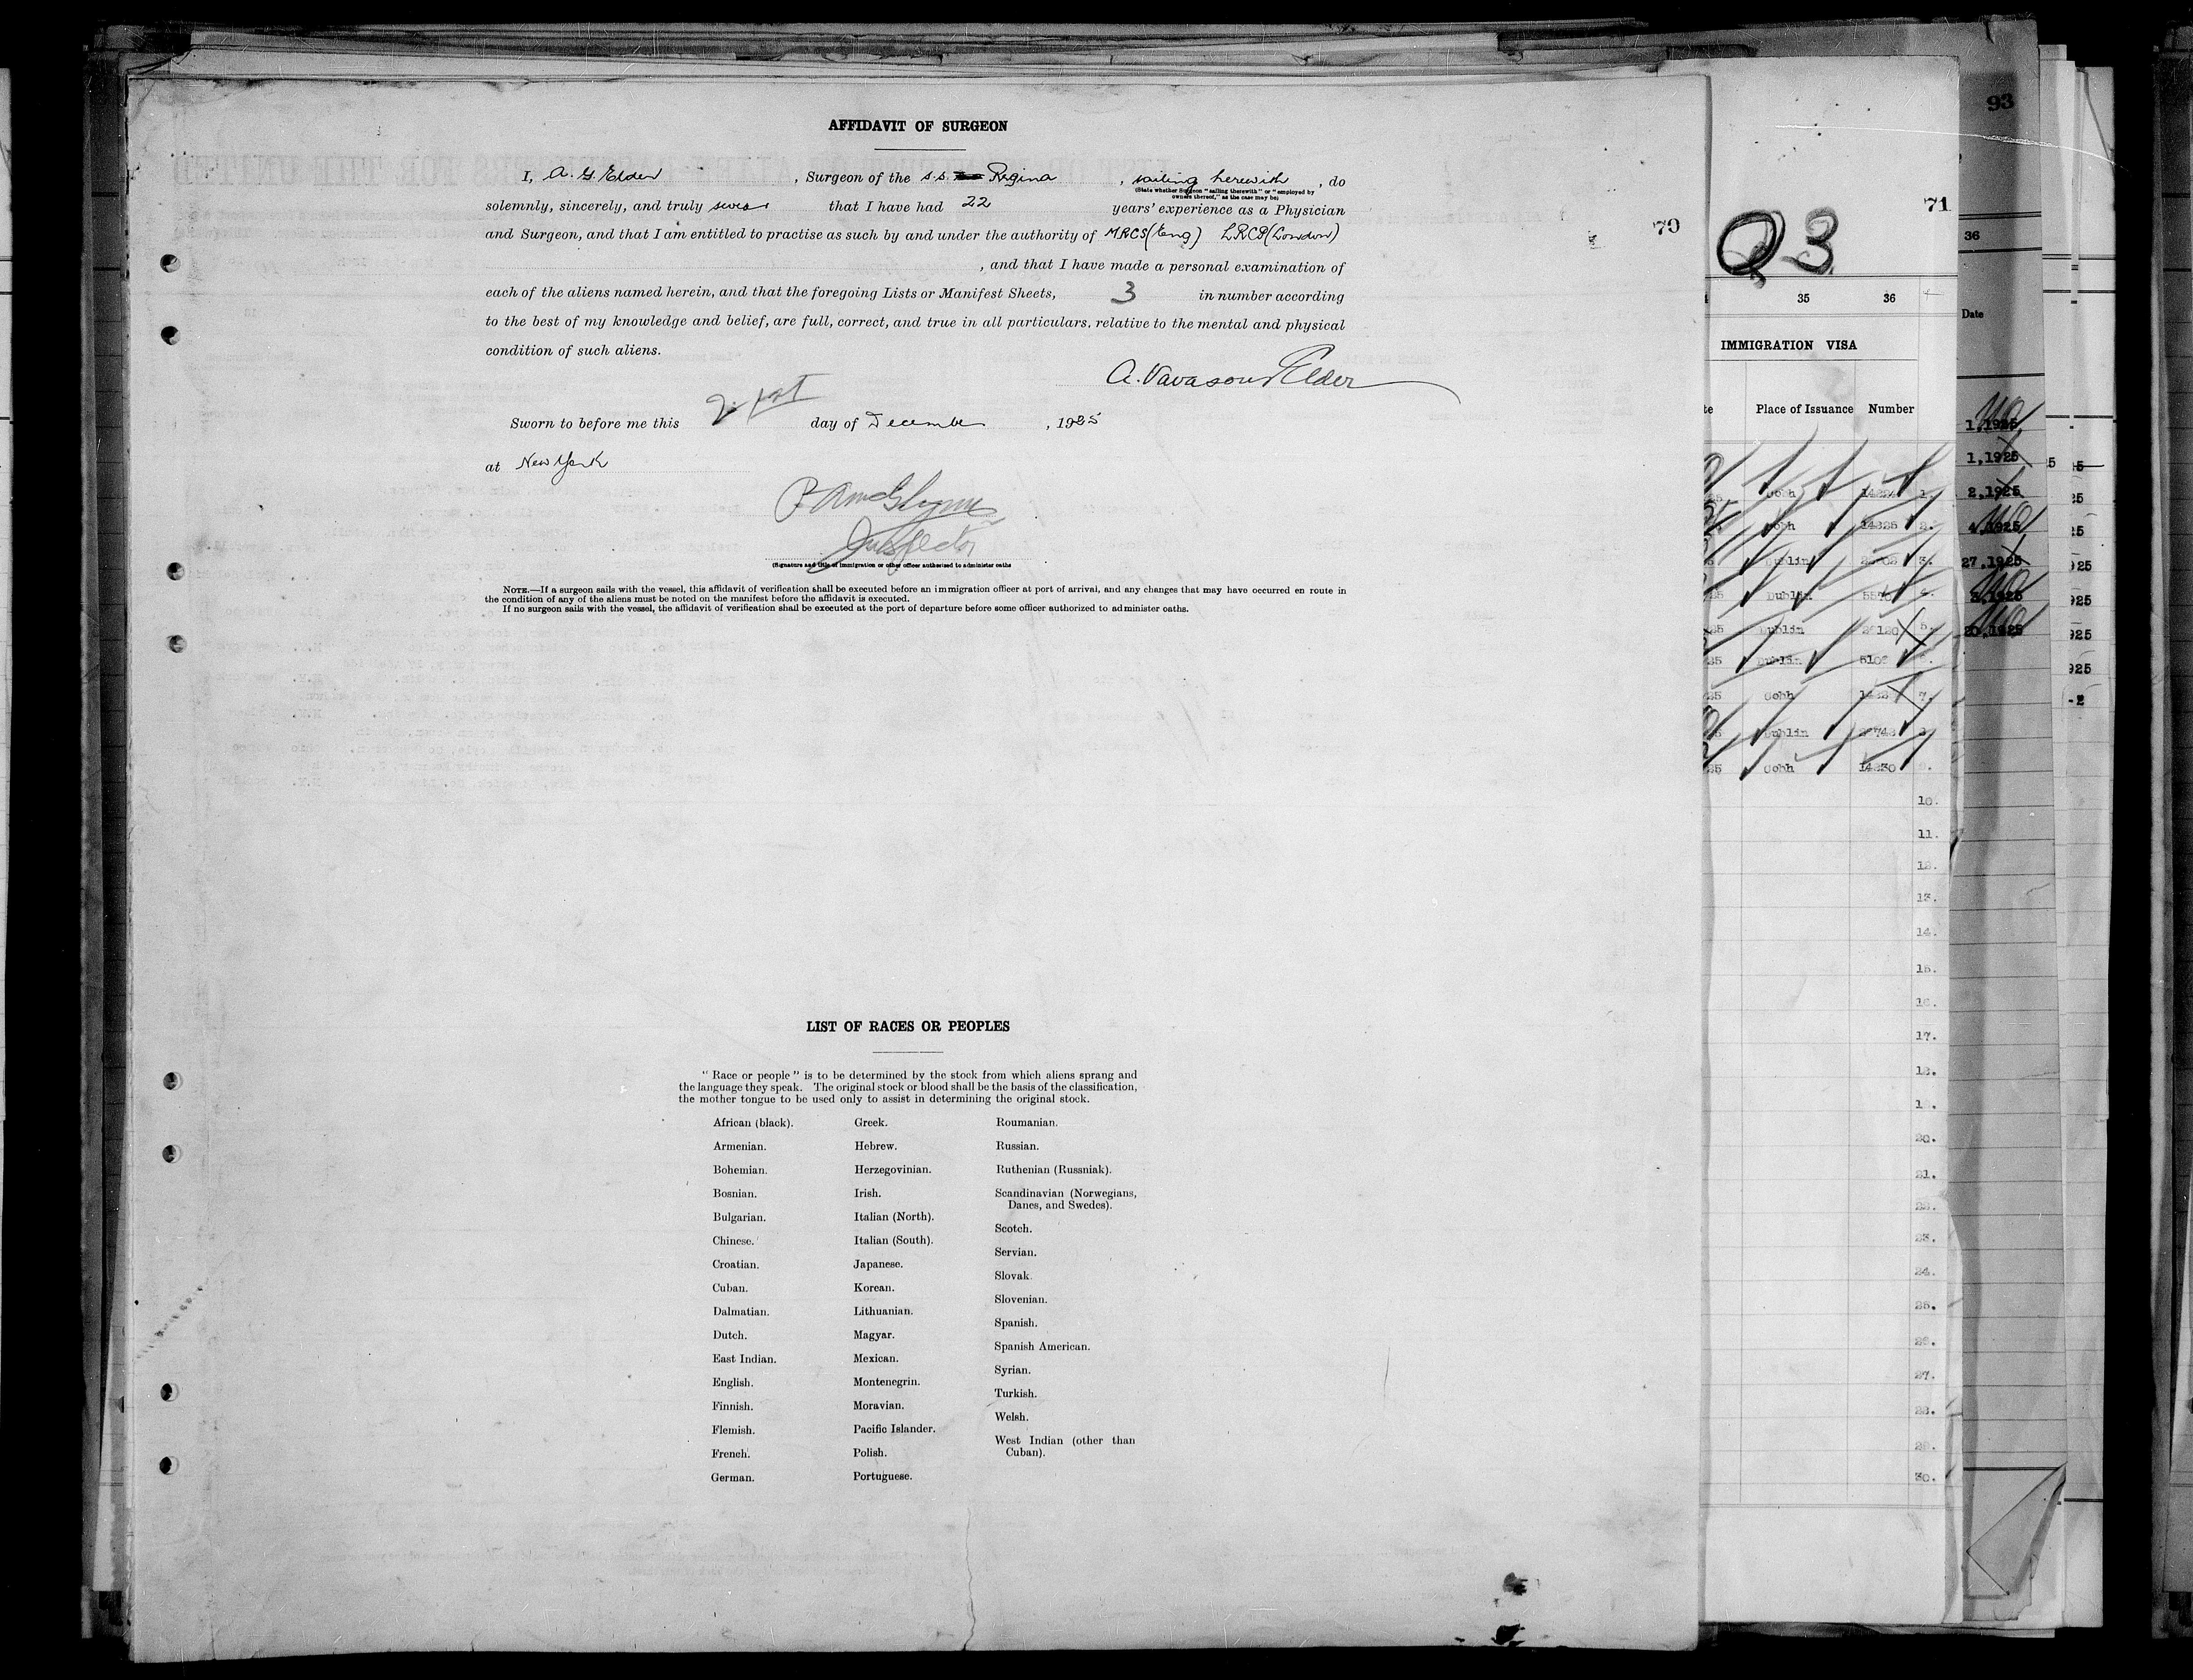 AFFIDAVIT OF SURGEON
I, A. G. Elder, Surgeon of the s.s. Regina, sailing herewith, do
(State whether Surgeon "sailing therewith" or "employed by
owners thereof," as the case may be)
solemnly, sincerely, and truly swear that I have had 22 years' experience as a Physician
and Surgeon, and that I am entitled to practise as such by and under the authority of MRCS (Eng) LRCP (London)
, and that I have made a personal examination of
each of the aliens named herein, and that the foregoing Lists or Manifest Sheets, 3 in number according
to the best of my knowledge and belief, are full, correct, and true in all particulars, relative to the mental and physical
condition of such aliens.
A. Vavasour Elder
Sworn to before me this 21st day of December, 1925
at New York
Inspector
(Signature and title of immigration or other officer authorized to administer oaths
NOTE.—If a surgeon sails with the vessel, this affidavit of verification shall be executed before an immigration officer at port of arrival, and any changes that may have occurred en route in
the condition of any of the aliens must be noted on the manifest before the affidavit is executed.
If no surgeon sails with the vessel, the affidavit of verification shall be executed at the port of departure before some officer authorized to administer oaths.
LIST OF RACES OR PEOPLES
"Race or people" is to be determined by the stock from which aliens sprang and
the language they speak. The original stock or blood shall be the basis of the classification,
the mother tongue to be used only to assist in determining the original stock.
African (black).
Armenian.
Bohemian.
Bosnian.
Bulgarian.
Chinese.
Croatian.
Cuban.
Dalmatian.
Dutch.
East Indian.
English.
Finnish.
Flemish.
French.
German.
Greek.
Hebrew.
Herzegovinian.
Irish.
Italian (North).
Italian (South).
Japanese.
Korean.
Lithuanian.
Magyar.
Mexican.
Montenegrin.
Moravian.
Pacific Islander.
Polish.
Portuguese.
Roumanian.
Russian.
Ruthenian (Russniak).
Scandinavian (Norwegians,
Danes, and Swedes).
Scotch.
Servian.
Slovak.
Slovenian.
Spanish.
Spanish American.
Syrian.
Turkish.
Welsh.
West Indian (other than
Cuban).
70
71
23
35 36
IMMIGRATION VISA
Place of Issuance Number
Cobh 1.
Cobh 14325 2.
Dublin 3.
Dublin 4.
Dublin 5.
Dublin
Cobh 7.
Dublin
Cobh 14330
10.
11.
12.
13.
14.
15.
16.
17.
18.
19.
20.
21.
22.
23.
24.
25.
26.
27.
28.
29.
30.
93
36
Date
1,1925
1,1925
2,1925
4,1925
27,1925
3,1925
20,1925